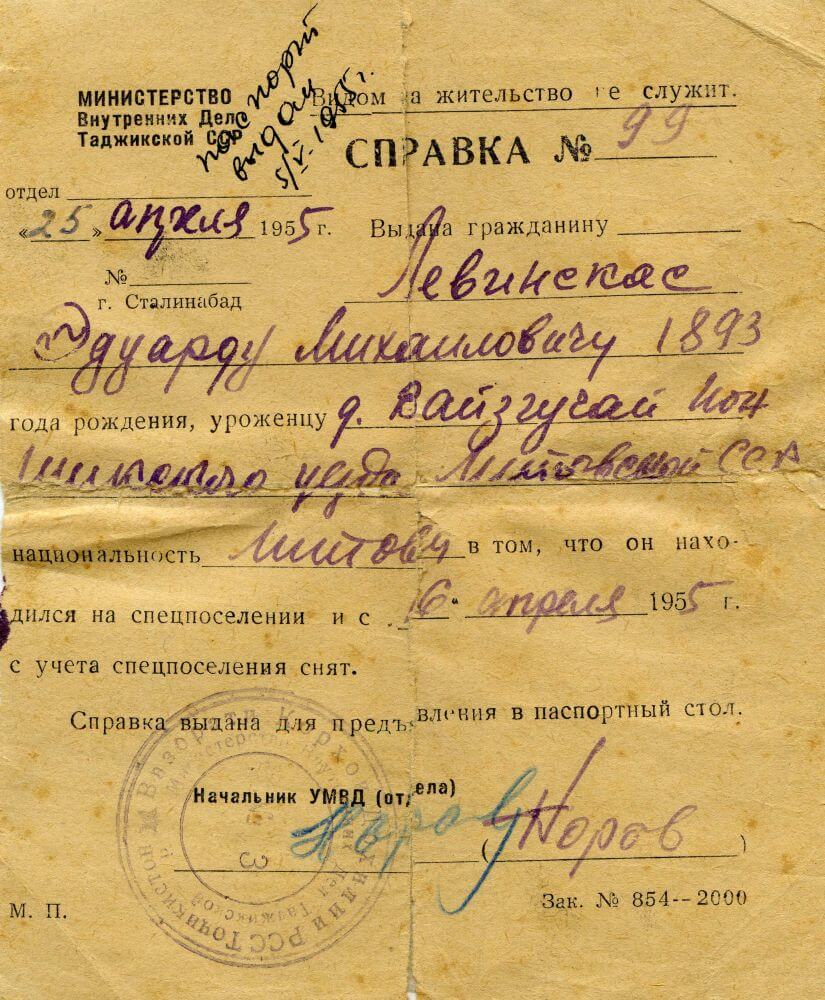 паспорт
выдан
5/V-1955г.
МИНИСТЕРСТВО
Внутренних Дел
Таджикской ССР
Видом на жительство не служит.
СПРАВКА № 99
отдел
«25» апреля 1955 г.
Выдана гражданину
№
г. Сталинабад
Левинскас
Эдуарду Михаиловичу 1893
года рождения, уроженцу д. Вайзгучай
уезда Литовской ССР
национальность Литовец в том, что он нахо-
дился на спецпоселении и с „16“ апреля 1955 г.
с учета спецпоселения снят.
Справка выдана для предъявления в паспортный стол.
Начальник УМВД (отдела)
(Норов)
М. П.
Зак. № 854--2000
Вазорати Корхои Дохилии РСС Тоҷикистон
Министерство Внутренних Дел Таджикской
3